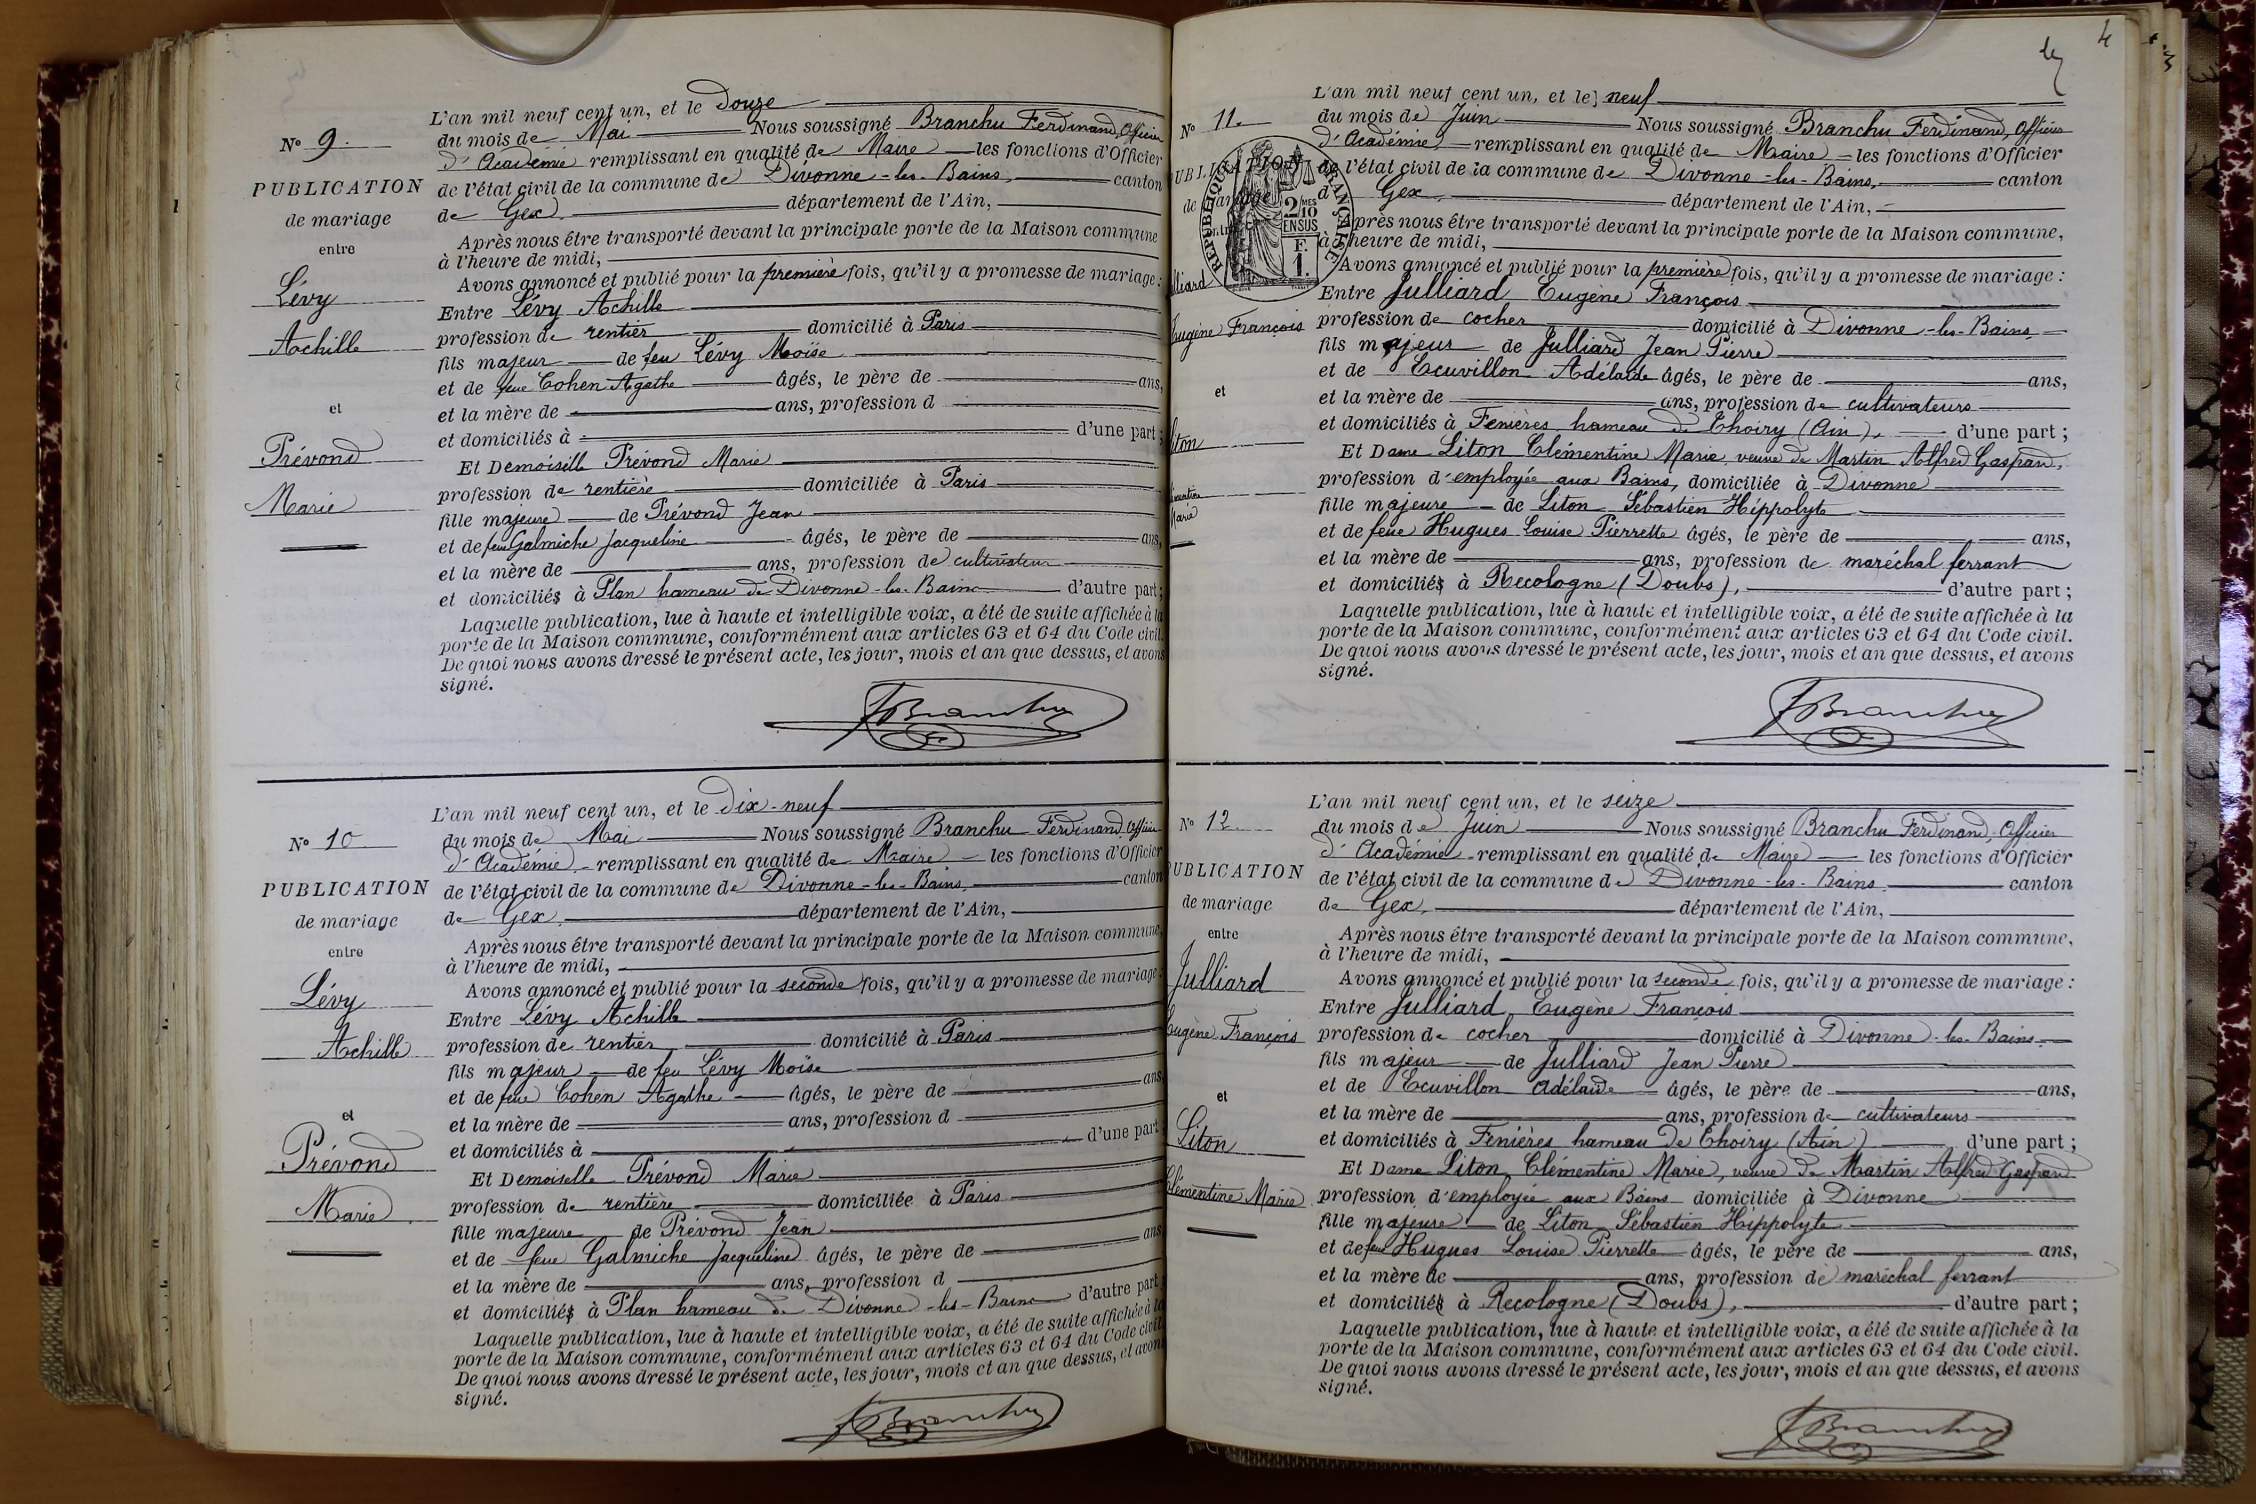 N° 9.
PUBLICATION
de mariage
entre
Lévy
Achille
et
Prévond
Marie
L'an mil neuf cent un, et le Douze
du mois de Mai Nous soussigné Branchu Ferdinand, Officier
d'Académie remplissant en qualité de Maire les fonctions d'Officier
de l'état civil de la commune de Divonne-les-Bains, canton
de Gex, département de l'Ain,
Après nous être transporté devant la principale porte de la Maison commune
à l'heure de midi,
Avons annoncé et publié pour la première fois, qu'il y a promesse de mariage :
Entre Lévy Achille
profession de rentier domicilié à Paris
fils majeur de feu Lévy Moïse
et de feue Cohen Agathe âgés, le père de ans,
et la mère de ans, profession d
et domiciliés à d'une part ;
Et Demoiselle Prévond Marie
profession de rentière domiciliée à Paris
fille majeure de Prévond Jean
et de feue Galmiche Jacqueline âgés, le père de ans,
et la mère de ans, profession de cultivateur
et domiciliés à Plan hameau de Divonne-les-Bains d'autre part ;
Laquelle publication, lue à haute et intelligible voix, a été de suite affichée à la
porte de la Maison commune, conformément aux articles 63 et 64 du Code civil.
De quoi nous avons dressé le présent acte, les jour, mois et an que dessus, et avons
signé.
FBranchu
N° 10
PUBLICATION
de mariage
entre
Lévy
Achille
et
Prévond
Marie
L'an mil neuf cent un, et le Dix-neuf
du mois de Mai Nous soussigné Branchu Ferdinand Officier
d'Académie remplissant en qualité de Maire les fonctions d'Officier
de l'état civil de la commune de Divonne-les-Bains, canton
de Gex, département de l'Ain,
Après nous être transporté devant la principale porte de la Maison commune,
à l'heure de midi,
Avons annoncé et publié pour la seconde fois, qu'il y a promesse de mariage :
Entre Lévy Achille
profession de rentier domicilié à Paris
fils majeur de feu Lévy Moïse
et de feue Cohen Agathe âgés, le père de ans,
et la mère de ans, profession d
et domiciliés à d'une part
Et Demoiselle Prévond Marie
profession de rentière domiciliée à Paris
fille majeure de Prévond Jean
et de feue Galmiche Jacqueline âgés, le père de ans
et la mère de ans, profession d
et domiciliés à Plan hameau de Divonne-les-Bains d'autre part
Laquelle publication, lue à haute et intelligible voix, a été de suite affichée à la
porte de la Maison commune, conformément aux articles 63 et 64 du Code civil
De quoi nous avons dressé le présent acte, les jour, mois et an que dessus, et avons
signé.
FBranchu
4
N° 11.
PUBLICATION
de mariage
RÉPUBLIQUE FRANÇAISE
2 MES 10
EN SUS
F.
1.
lliard
Eugène François
et
Liton
Clémentine
Marie
L'an mil neuf cent un, et le neuf
du mois de Juin Nous soussigné Branchu Ferdinand, Officier
d'Académie remplissant en qualité de Maire les fonctions d'Officier
de l'état civil de la commune de Divonne-les-Bains, canton
d Gex, département de l'Ain,
Après nous être transporté devant la principale porte de la Maison commune,
à l'heure de midi,
Avons annoncé et publié pour la première fois, qu'il y a promesse de mariage :
Entre Julliard Eugène François
profession de cocher domicilié à Divonne-les-Bains,
fils majeur de Julliard Jean Pierre
et de Ecuvillon Adélaïde âgés, le père de ans,
et la mère de ans, profession de cultivateurs
et domiciliés à Fenières hameau de Thoiry (Ain), d'une part ;
Et Dame Liton Clémentine Marie, veuve de Martin Alfred Gaspard,
profession d'employée aux Bains, domiciliée à Divonne
fille majeure de Liton Sébastien Hippolyte
et de feue Hugues Louise Pierrette âgés, le père de ans,
et la mère de ans, profession de maréchal ferrant
et domiciliés à Recologne (Doubs), d'autre part ;
Laquelle publication, lue à haute et intelligible voix, a été de suite affichée à la
porte de la Maison commune, conformément aux articles 63 et 64 du Code civil.
De quoi nous avons dressé le présent acte, les jour, mois et an que dessus, et avons
signé.
FBranchu
N° 12.
PUBLICATION
de mariage
entre
Julliard
Eugène François
et
Liton
Clémentine Marie
L'an mil neuf cent un, et le seize
du mois de Juin Nous soussigné Branchu Ferdinand, Officier
d'Académie remplissant en qualité de Maire les fonctions d'Officier
de l'état civil de la commune de Divonne-les-Bains canton
de Gex, département de l'Ain,
Après nous être transporté devant la principale porte de la Maison commune,
à l'heure de midi,
Avons annoncé et publié pour la seconde fois, qu'il y a promesse de mariage :
Entre Julliard Eugène François
profession de cocher domicilié à Divonne-les-Bains
fils majeur de Julliard Jean Pierre
et de Ecuvillon Adélaïde âgés, le père de ans,
et la mère de ans, profession de cultivateurs
et domiciliés à Fenières hameau de Thoiry (Ain) d'une part ;
Et Dame Liton Clémentine Marie, veuve de Martin Alfred Gaspard
profession d'employée aux Bains domiciliée à Divonne
fille majeure de Liton Sébastien Hippolyte
et de feue Hugues Louise Pierrette âgés, le père de ans,
et la mère de ans, profession de maréchal ferrant
et domiciliés à Recologne (Doubs), d'autre part ;
Laquelle publication, lue à haute et intelligible voix, a été de suite affichée à la
porte de la Maison commune, conformément aux articles 63 et 64 du Code civil.
De quoi nous avons dressé le présent acte, les jour, mois et an que dessus, et avons
signé.
FBranchu